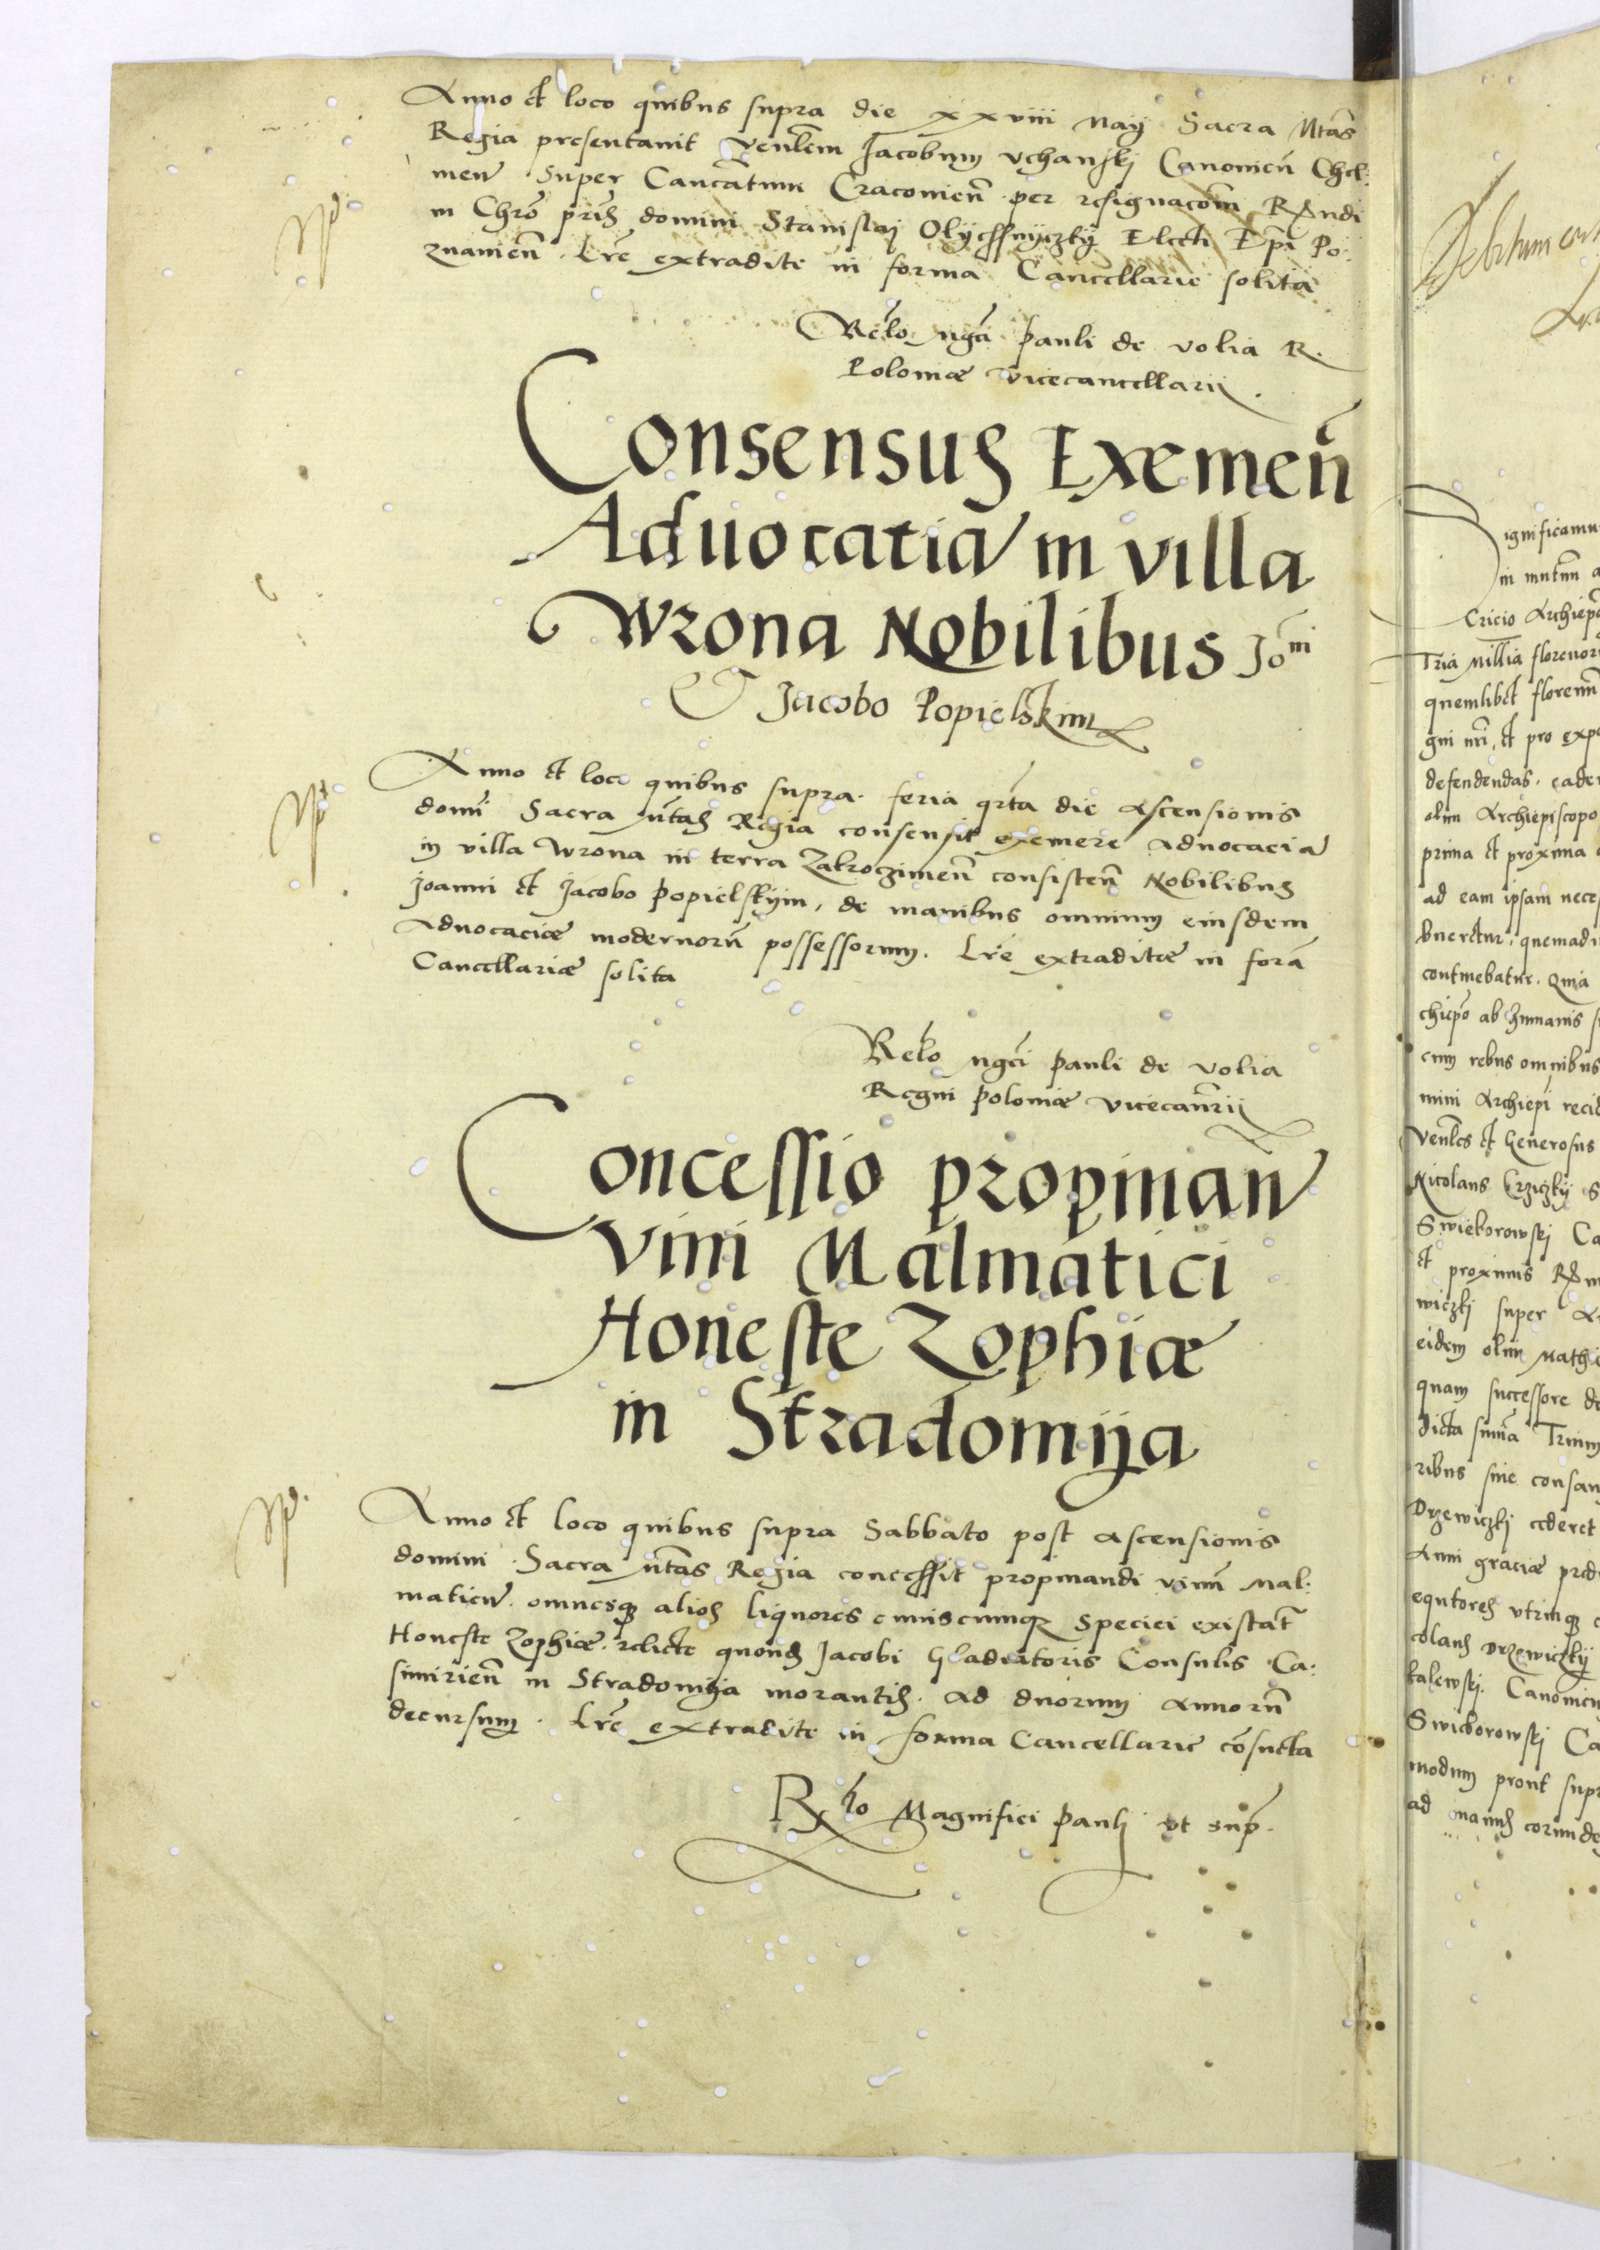 Anno et loco quibus supra die xxviii Maij Sacra Mtãs
Regia presentavit Venlẽm Jacobum Uchanskj Canonicũ Chel:
men̄ super Cancãtum Cracovien̄ per resignacõm Rx̃ndi
in Chrõ prĩs domini Stanislaj Olyessnyczkÿ Elcti Epĩ Po
znanien̄. Lrẽ extradite in forma Cancellarie solita
Relo mgcĩ Pauli de Volia R.
Poloniæ Vicecancellarij.
Consensus Exemen̄
Advocatiã in villa
Wrona Nobilibus Joni
Et Jacobo Popielskim
Anno et loco quibus supra. feria qrta die Ascensionis
domĩ Sacra Mtãs Regia consensit eximere Advocaciã
in villa Wrona in terra Zakrocziminen̄ consisten̄ Nobilibus
Joanni et Jacobo Popielskÿm, de manibus omnium eiusdem
Advocaciæ modernorũ possessorum. Lrẽ extraditæ in forã
Cancellariæ solita
Relo mgcĩ Pauli de Volia
Regni Poloniæ Vicecanrij
Concessio propinan̄
Vini Malmatici
Honeste Zophiæ
in Stradomÿa
Anno et loco quibus supra Sabbato post Ascensionis
domini. Sacra Mtãs Regia concessit propinandi vinũ Mal:
maticũ. omnesqȝ alios liquores cuiuscumqȝ speciei existãt
Honeste Zophiæ. relicte quonds Jacobi Gladiatoris Consulis Ca:
simirien̄ in Stradomÿa morantis. ad duorum Annorũ
decursum. Lrẽ extradite in forma Cancellarie cõsueta
Relo Magnifici Pauli ut sup̃.
Debitum
ignificamus
in multum
Cricio Archiepõ
Tria Millia floreno
quemlibet florenũ
gni nri, et pro exp
defendendas. eade
olim Archiepiscopo
prima et proxima
ad eam ipsam neces
bueretur, quemad
continebatur. Quia
chiepõ ab humanis
cum rebus omnibus
mini Archiepi
Venles et Generosus
Nicolaus Crziczkÿ
Swieborowskj Ca
et proximis
wiczkj super
eidem olim Mathi
quam successore de
dicta summa Trium
ribus sive consan
Drzewiczkj cederet
Anni graciæ
eqntores utrinqȝ
colaus Drzewiczkÿ
kalewskj. Canonic
Swieborowskj Ca
modum prout supr
ad manus eorunde